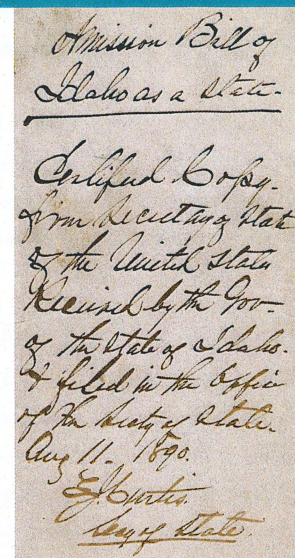 Admission Bill of
Idaho as a State-
Certified Copy-
from Secretary of State
of the United States
Received by the Gov-
of the State of Idaho-
& filed in the Office
of the Secty of State-
Aug 11- 1890.
E.J. Curtis.
Secy of State.